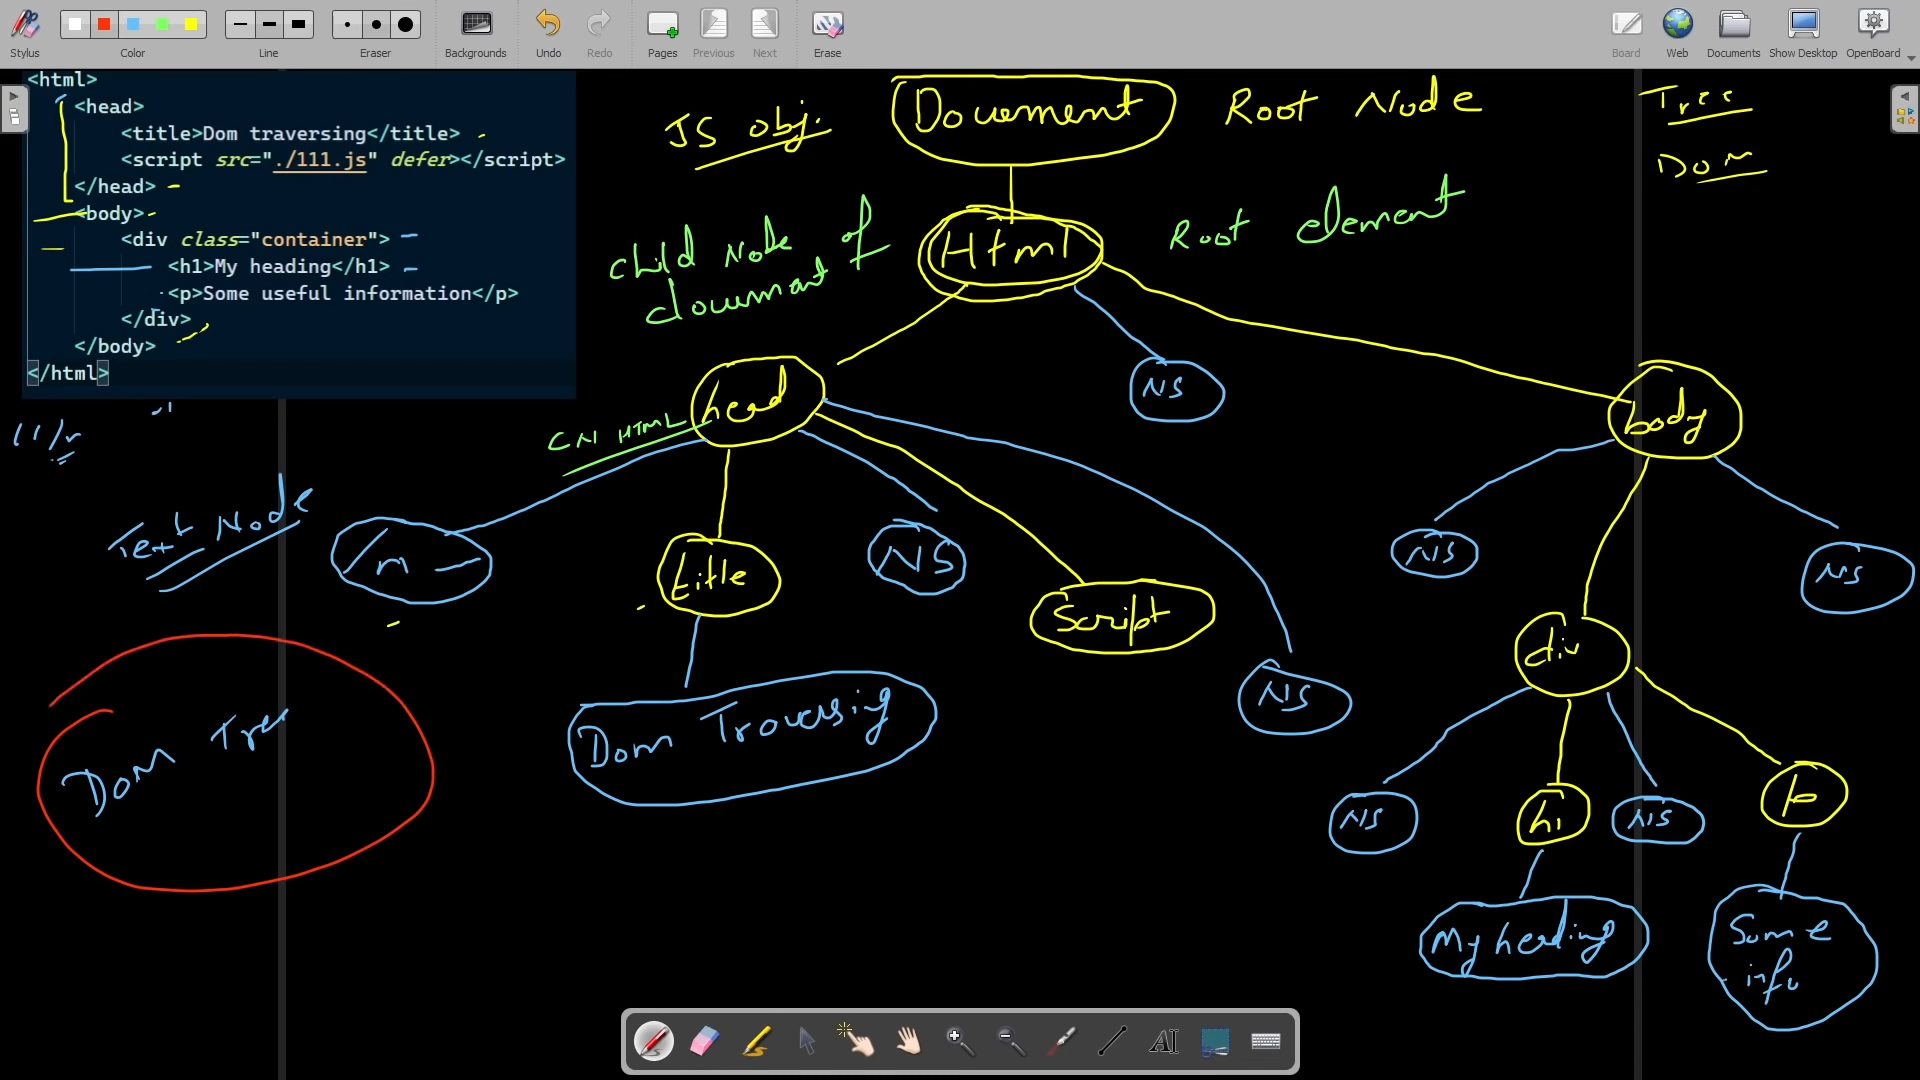 Stylus
Color
Line
Eraser
Backgrounds
Undo
Redo
Pages
Previous
Next
Erase
Board
Web
Documents
Show Desktop
OpenBoard
<html>
<head>
<title>Dom traversing</title>
<script src="./111.js" defer></script>
</head>
<body>
<div class="container">
<h1>My heading</h1>
<p>Some useful information</p>
</div>
</body>
</html>
JS obj.
Document
Root Node
Tree
Dom
Child Node of
document
Html
Root element
CN HTML
head
NS
body
Text Node
/n
title
NS
script
NS
NS
NS
div
Dom Tree
Dom Traversing
NS
h1
NS
p
My heading
Some
info
AI